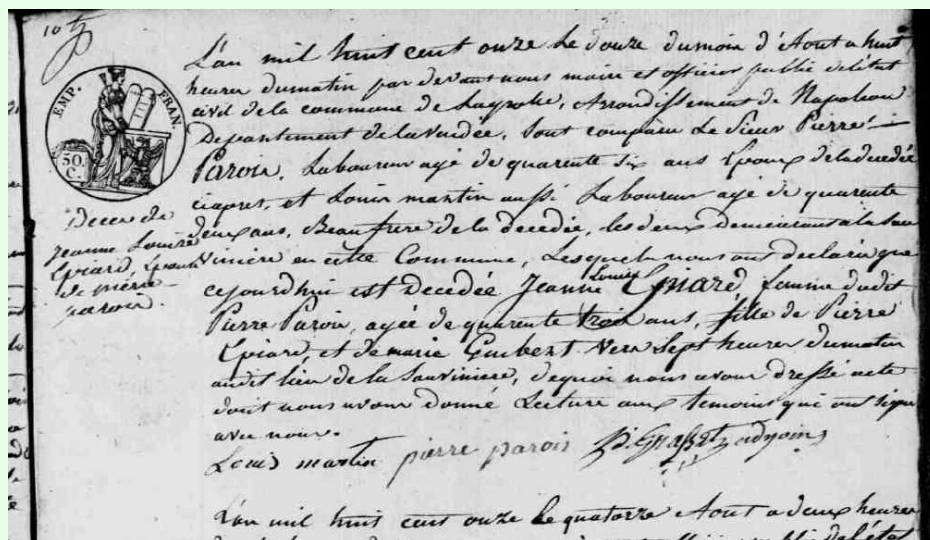 10
EMP. FRAN.
50.
C.
L'an mil huit cent onze Le douze du mois d'Aout a huit
heures du matin par devant nous maire et officier public de l'état
civil de la commune de Arrondissement de Napoléon
Departement de la vendée, Sont comparu Le Sieur Pierre
Parois, Laboureur agé de quarente six ans Epoux de la decedée
ciapres, et Louis martin aussi Laboureur agé de quarente
deux ans, Beaufrere de la decedée, les deux demeurant a la Sau
viniere en cette Commune, Lesquels nous ont declaré que
cejourdhui est Decedée Jeanne Louise Epiard, femme dudit
Pierre Parois, agée de quarente trois ans, fille de Pierre
Epiard, et de marie Guibert vers Sept heures du matin
audit lieu de la Sauviniere, dequoi nous avons dressé acte
dont nous avons donné Lecture aux temoins qui ont signé
avec nous.
Louis martin pierre parois adjoint
Deces de
Jeanne Louise
Epiard, Epouse
de pierre
parois.
L'an mil huit cent onze Le quatorze Aout a deux heures